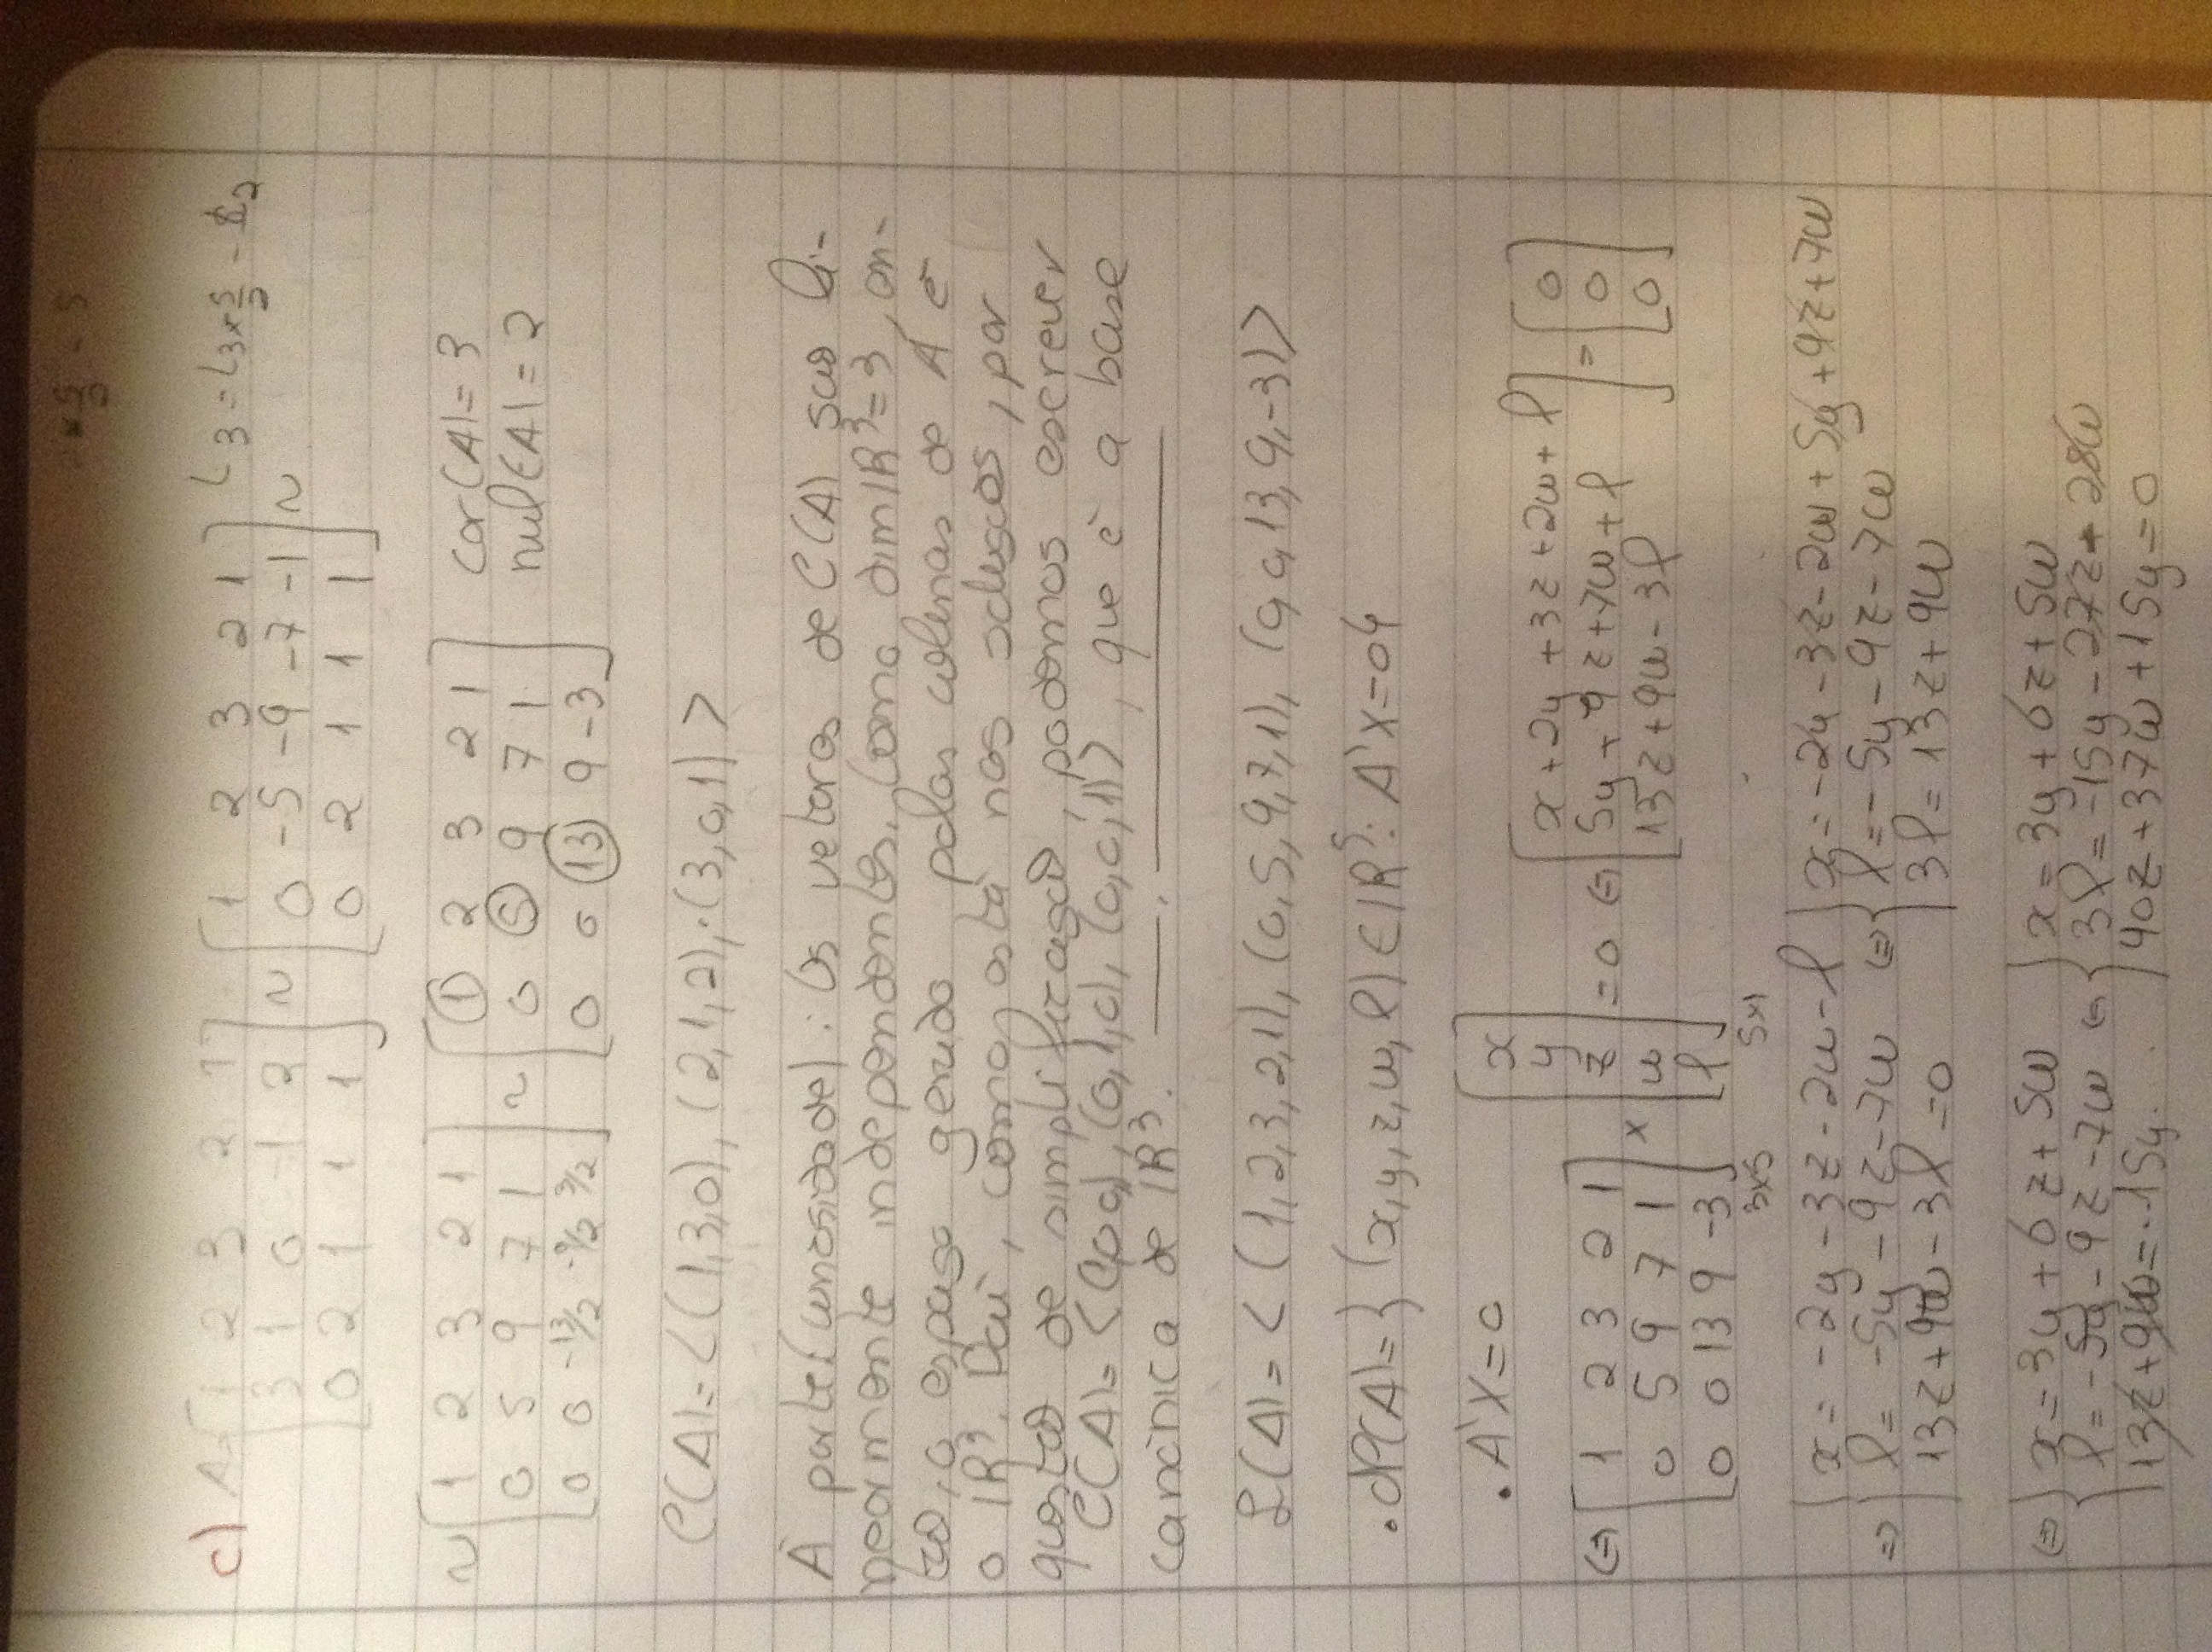 × 5/2 - 5
c) A = [1 2 3 2 1; 3 1 0 -1 2; 0 2 1 1 1] ~ [1 2 3 2 1; 0 -5 -9 -7 -1; 0 2 1 1 1] ~ L3 = L3 × 5/2 - L2
~ [1 2 3 2 1; 0 5 9 7 1; 0 0 -13/2 -9/2 3/2] ~ [1 2 3 2 1; 0 5 9 7 1; 0 0 13 9 -3] car(A) = 3
nul(A) = 2
C(A) = <(1,3,0), (2,1,2), (3,0,1)>
À parte (curiosidade): Os vetores de C(A) são li-
nearmente independentes. Como dim IR³=3, en-
tão, o espaço gerado pelas colunas de A é
o IR³. Daí, como está nas soluções, por
questão de simplificação, podemos escrever
C(A) = <(1,0,0), (0,1,0), (0,0,1)>, que é a base
canónica de IR³.
L(A) = < (1,2,3,2,1), (0,5,9,7,1), (0,0,13,9,-3)>
. N(A) = { (x,y,z,w,l) ∈ IR⁵: A'X=0}
. A'X=0
⇔ [1 2 3 2 1; 0 5 9 7 1; 0 0 13 9 -3] 3×5 × [x; y; z; w; l] 5×1 = 0 ⇔ [x+2y+3z+2w+l; 5y+9z+7w+l; 13z+9w-3l] = [0; 0; 0]
⇒ { x = -2y-3z-2w-l { x = -2y-3z-2w+5y+9z+7w
l = -5y-9z-7w ⇔ l = -5y-9z-7w
13z+9w-3l = 0 3l = 13z+9w
⇔ { x = 3y+6z+5w { x = 3y+6z+5w
l = -5y-9z-7w ⇔ 3l = -15y-27z-28w
13z+9w = -15y 40z+37w+15y = 0